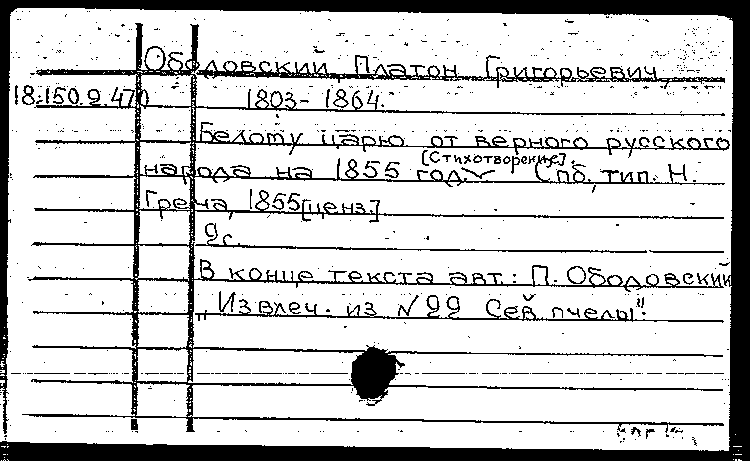 Ободовский, Платон Григорьевич,
18.150.2.470 1803-1864.
Белому царю от верного русского
[Стихотворение]
народа на 1855 год. Спб, тип. Н.
Греча, 1855 [ценз.]
2с.
В конце текста авт.: П. Ободовский
"Извлеч. из № 22 Сев пчелы".